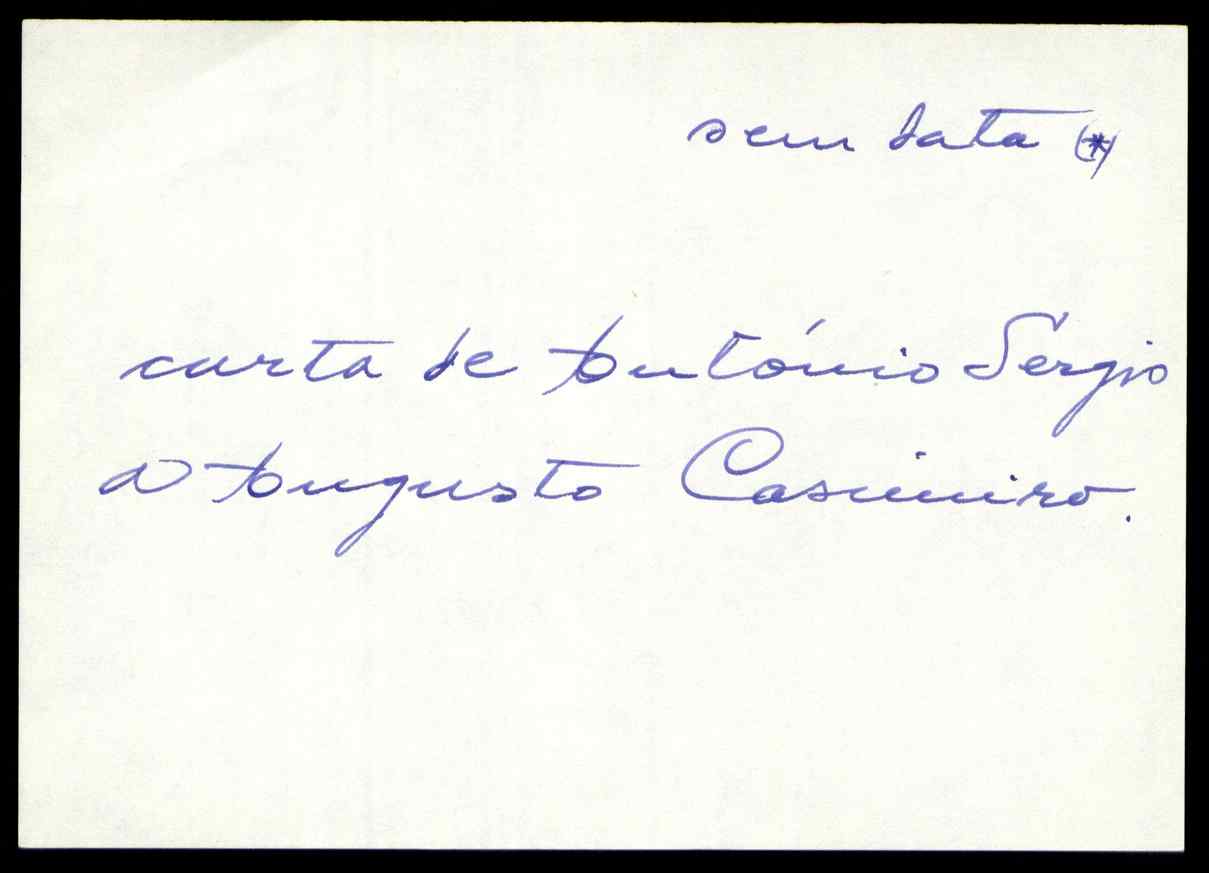 sem data (*)
carta de António Sergio
a Augusto Casimiro.